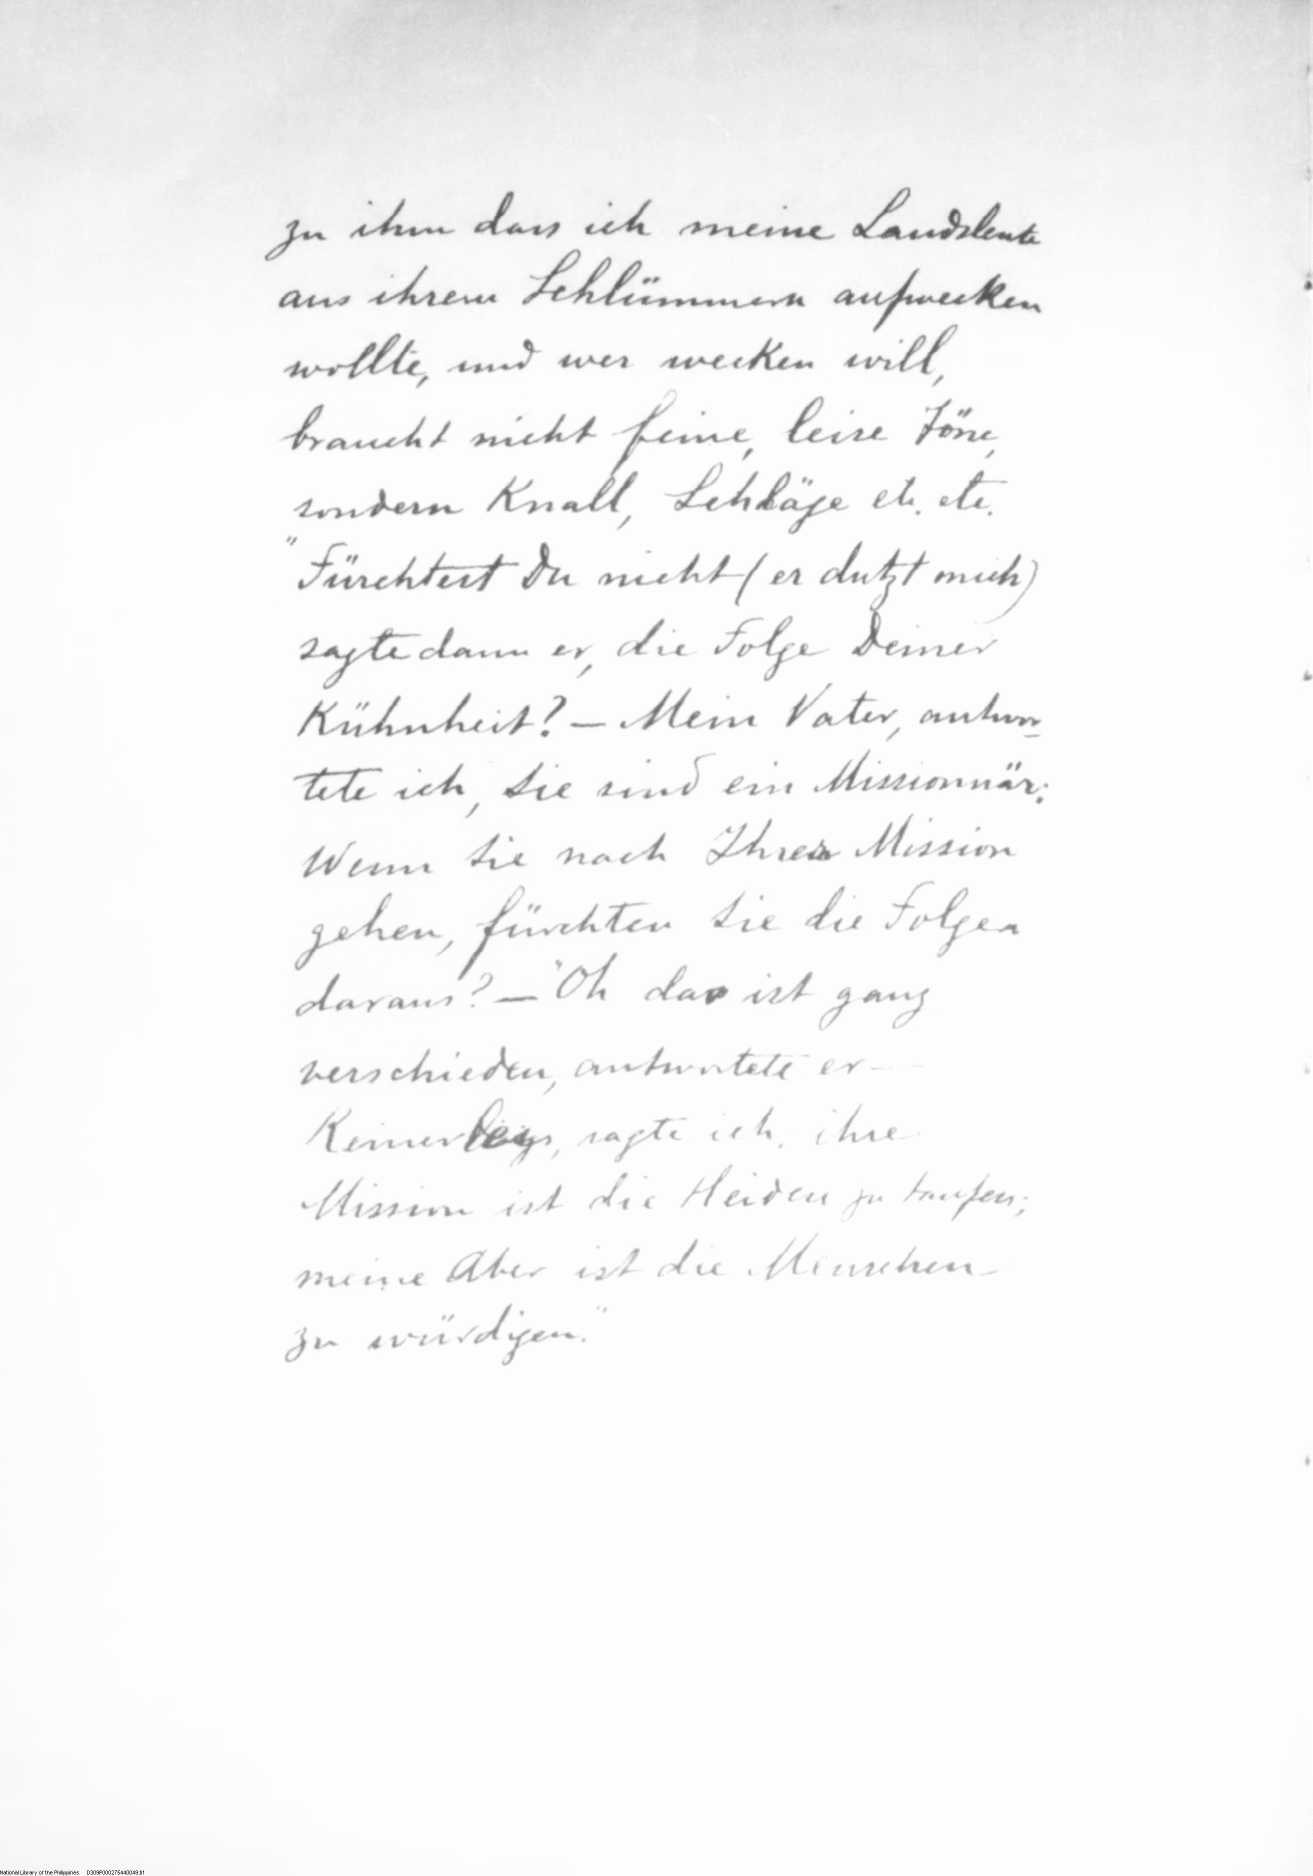 zu ihm dass ich meine Landsleute
aus ihrem Schlümmern aufwecken
wollte, und wer wecken will,
braucht nicht feine, leise Töne,
sondern Knall, Schläge etc. etc.
"Fürchtest Du nicht (er dutzt mich)
sagte dann er, die Folge Deiner
Kühnheit? — Mein Vater, antwor-
tete ich, Sie sind ein Missionnär;
Wenn Sie nach Ihrer Mission
gehen, fürchten Sie die Folgen
daraus? — "Oh das ist ganz
verschieden, antwortete er —
sagte ich, ihre
Mission ist die Heiden zu taufen;
meine Aber ist die Menschen
zu würdigen."
National Library of the Philippines D309P000275440049.tif